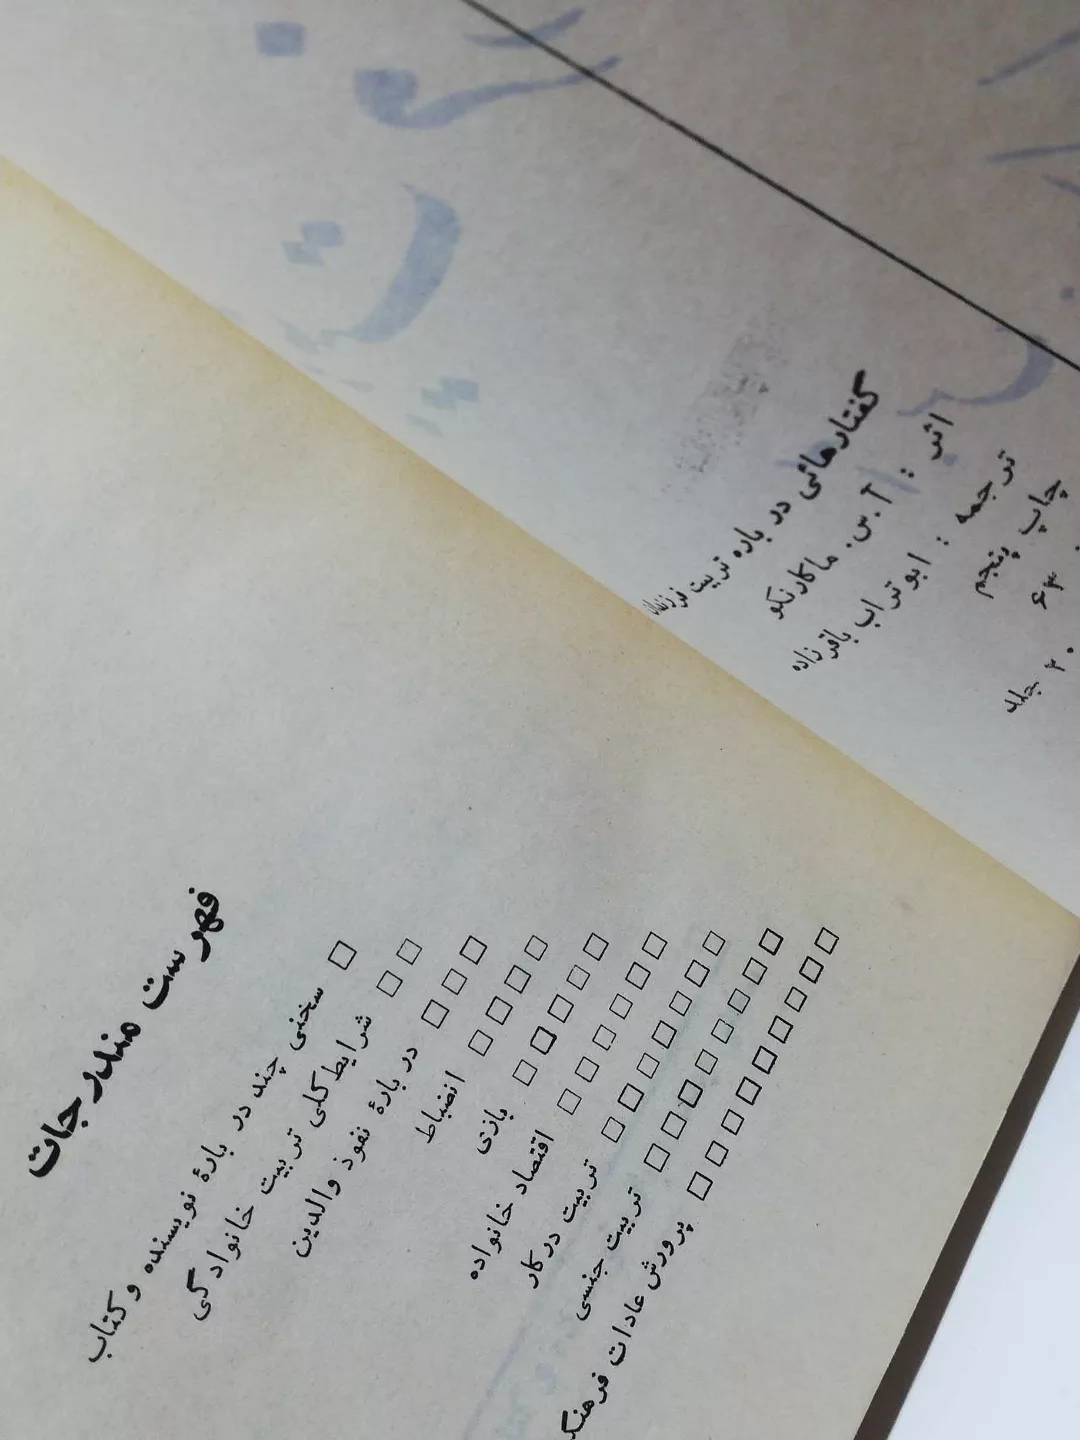 گفتارهائی در باره تربیت فرزندان
اثر : آ.س. ماکارنکو
ترجمه : ابوتراب باقرزاده
چاپ پنجم
۶۳
جلد
فهرست مندرجات
□ سخنی چند در بارهٔ نویسنده و کتاب
□□ شرایط کلی تربیت خانوادگی
□□□ در بارهٔ نفوذ والدین
□□□□ انضباط
□□□□□ بازی
□□□□□□ اقتصاد خانواده
□□□□□□□ تربیت در کار
□□□□□□□□ تربیت جنسی
□□□□□□□□□ پرورش عادات